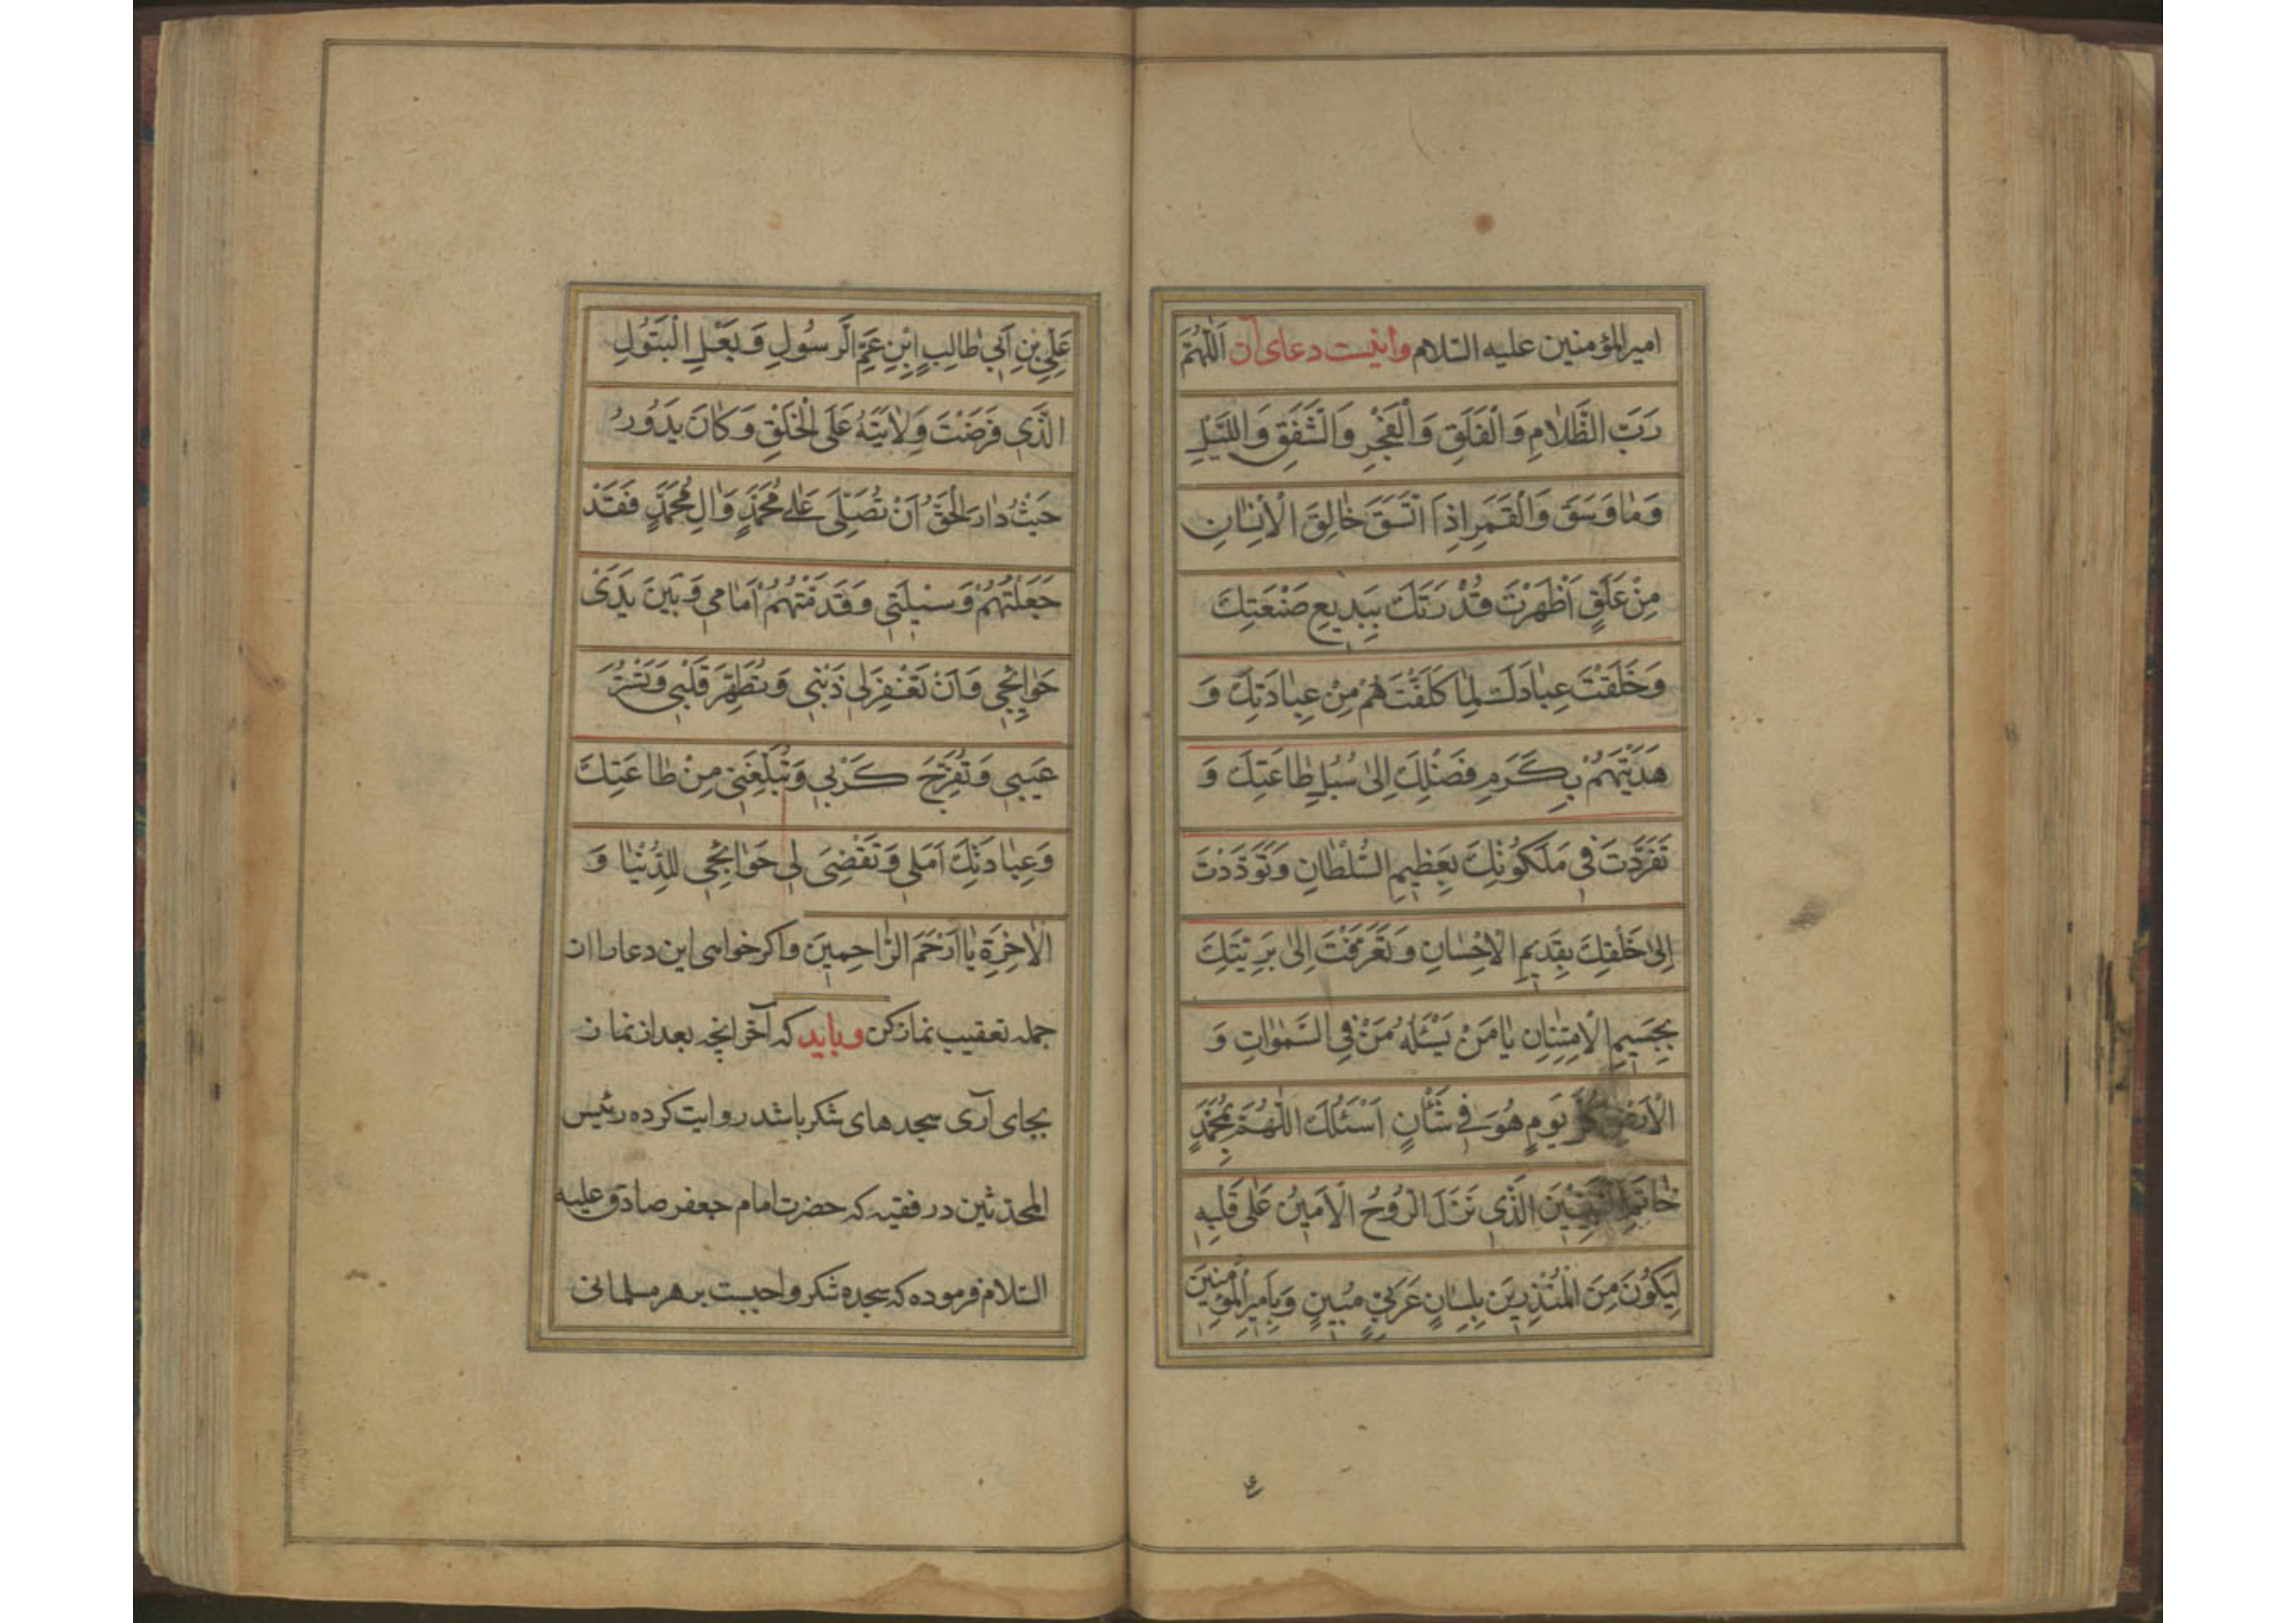 امیرالمؤمنین علیه السّلام واینست دعای آن اَللّٰهُمَّ
رَبَّ الظَّلٰامِ وَالْفَلَقِ وَالْفَجْرِ وَالشَّفَقِ وَاللَّیْلِ
وَمٰا وَسَقَ وَالْقَمَرِ اِذَا اتَّسَقَ خٰالِقَ الْاِنْسٰانِ
مِنْ عَلَقٍ اَظْهَرْتَ قُدْرَتَكَ بِبَدِیعِ صَنْعَتِكَ
وَخَلَقْتَ عِبٰادَكَ لِمٰا كَلَّفْتَهُمْ مِنْ عِبٰادَتِكَ وَ
هَدَیْتَهُمْ بِكَرَمِ فَضْلِكَ اِلیٰ سُبُلِ طٰاعَتِكَ وَ
تَفَرَّدْتَ فی مَلَكُوتِكَ بِعَظِیمِ السُّلْطٰانِ وَتَوَدَّدْتَ
اِلیٰ خَلْقِكَ بِقَدِیمِ الْاِحْسٰانِ وَتَعَرَّفْتَ اِلیٰ بَرِیَّتِكَ
بِجَسِیمِ الْاِمْتِنٰانِ یٰا مَنْ یَسْئَلُهُ مَنْ فِی السَّمٰوٰاتِ وَ
الْاَرْضِ كُلَّ یَوْمٍ هُوَ فی شَأْنٍ اَسْئَلُكَ اللّٰهُمَّ بِمُحَمَّدٍ
خٰاتَمِ النَّبِیّینَ الَّذی نَزَلَ الرُّوحُ الْاَمینُ عَلیٰ قَلْبِهِ
لِیَكُونَ مِنَ الْمُنْذِرینَ بِلِسٰانٍ عَرَبِیٍّ مُبینٍ وَبِاَمیرِالْمُؤْمِنینَ
عَلِیِّ بْنِ اَبی طٰالِبٍ ابْنِ عَمِّ الرَّسُولِ وَبَعْلِ الْبَتُولِ
الَّذی فَرَضْتَ وِلٰایَتَهُ عَلَی الْخَلْقِ وَكٰانَ یَدُورُ
حَیْثُ دٰارَ الْحَقُّ اَنْ تُصَلِّیَ عَلیٰ مُحَمَّدٍ وَاٰلِ مُحَمَّدٍ فَقَدْ
جَعَلْتُهُمْ وَسیلَتی وَقَدَّمْتُهُمْ اَمٰامی وَبَیْنَ یَدَیْ
حَوٰائِجی وَاَنْ تَغْفِرَ لی ذَنْبی وَتُطَهِّرَ قَلْبی وَتَسْتُرَ
عَیْبی وَتُفَرِّجَ كَرْبی وَتُبَلِّغَنی مِنْ طٰاعَتِكَ
وَعِبٰادَتِكَ اَمَلی وَتَقْضِیَ لی حَوٰائِجی لِلدُّنْیٰا وَ
الْاٰخِرَةِ یٰا اَرْحَمَ الرّٰاحِمینَ واكر خواهی این دعا را از
جمله تعقیب نماز كن وباید كه آخر انچه بعد از نماز
بجای آری سجدهای شكر باشد روایت كرده رئیس
المحدّثین در فقیه كه حضرت امام جعفر صادق علیه
السّلام فرموده كه سجده شكر واجبست بر هر مسلمانی